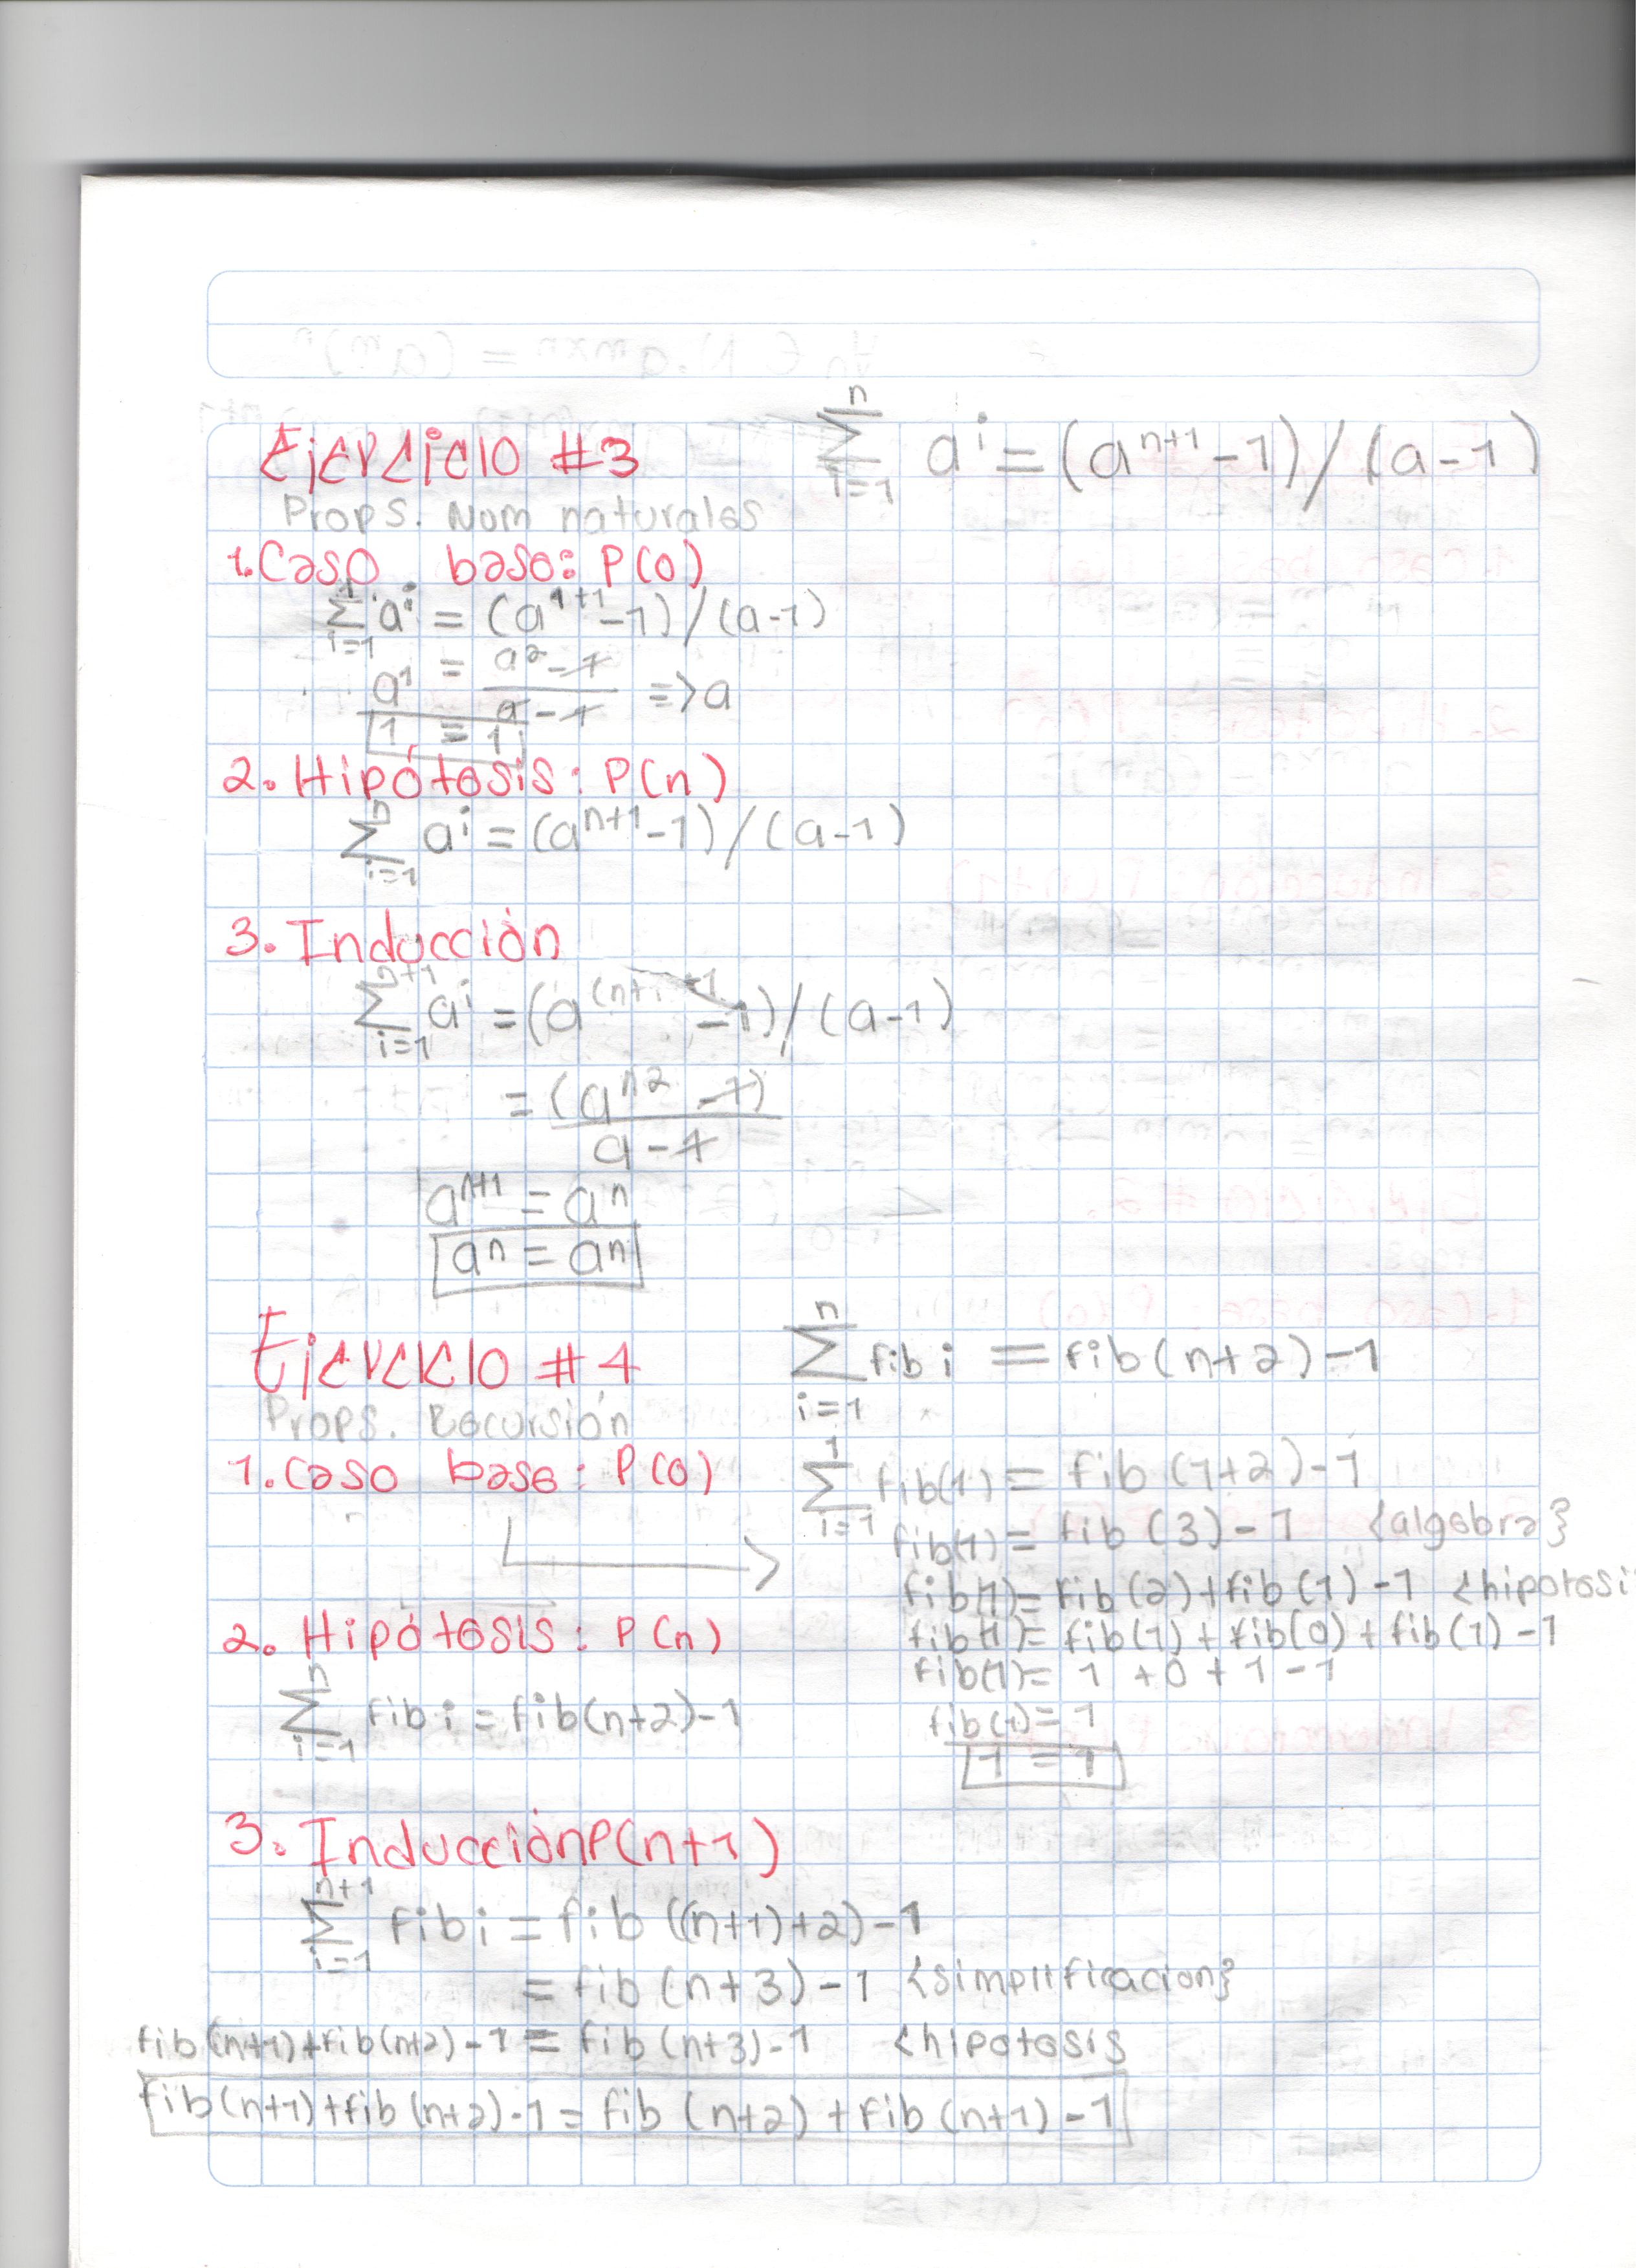 Ejercicio #3
n
Σ aⁱ = (aⁿ⁺¹ - 1) / (a - 1)
i=1
Props. Nom naturales
1. Caso base: P(0)
1
Σ aⁱ = (a¹⁺¹ - 1) / (a-1)
i=1
a¹ = a² - 1 / a - 1 => a
1 = 1
2. Hipótesis: P(n)
n
Σ aⁱ = (aⁿ⁺¹ - 1) / (a - 1)
i=1
3. Inducción
n+1
Σ aⁱ = (a⁽ⁿ⁺¹ ⁺¹ - 1) / (a - 1)
i=1
= (aⁿ² - 1) / a - 1
aⁿ⁺¹ = aⁿ
aⁿ = aⁿ
Ejercicio #4
n
Σ fib i = fib(n+2) - 1
i=1
Props. Recursión
1. Caso base: P(0)
1
Σ fib(1) = fib (1+2) - 1
i=1
fib(1) = fib (3) - 1 {algebra}
fib(1) = fib (2) + fib (1) - 1 <hipotesi
fib(1) = fib(1) + fib(0) + fib(1) - 1
fib(1) = 1 + 0 + 1 - 1
fib(1) = 1
1 = 1
2. Hipótesis: P(n)
n
Σ fib i = fib(n+2) - 1
i=1
3. Inducción P(n+1)
n+1
Σ fib i = fib ((n+1)+2) - 1
i=1
= fib (n+3) - 1 {simplificacion}
fib (n+1) + fib(n+2) - 1 = fib (n+3) - 1 <hipotesis
fib (n+1) + fib (n+2) - 1 = fib (n+2) + fib (n+1) - 1